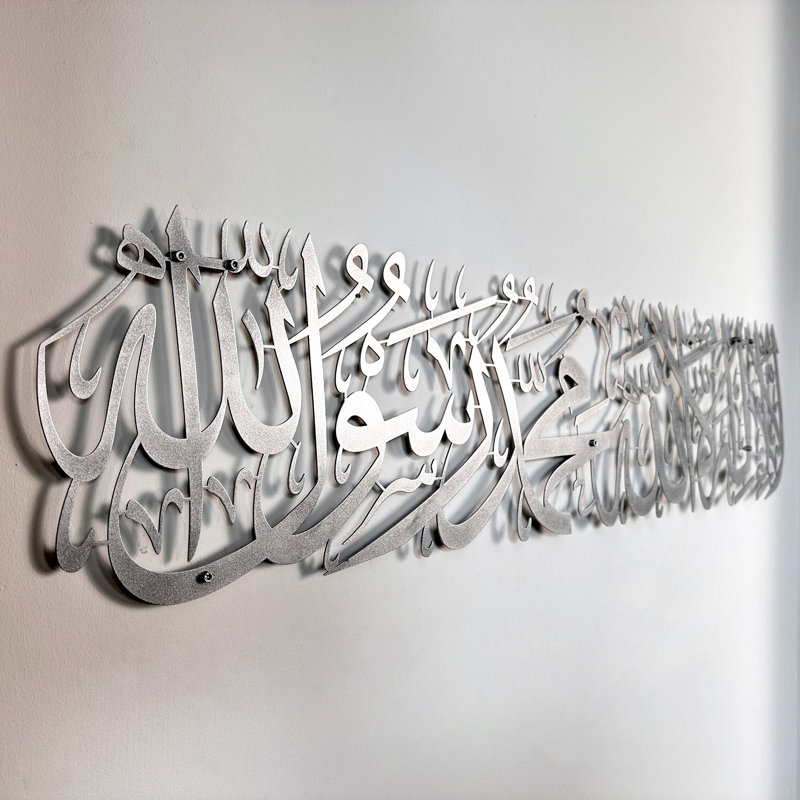 لَا إِلَهَ إِلَّا اللّٰه مُحَمَّدٌ رَسُولُ اللّٰه